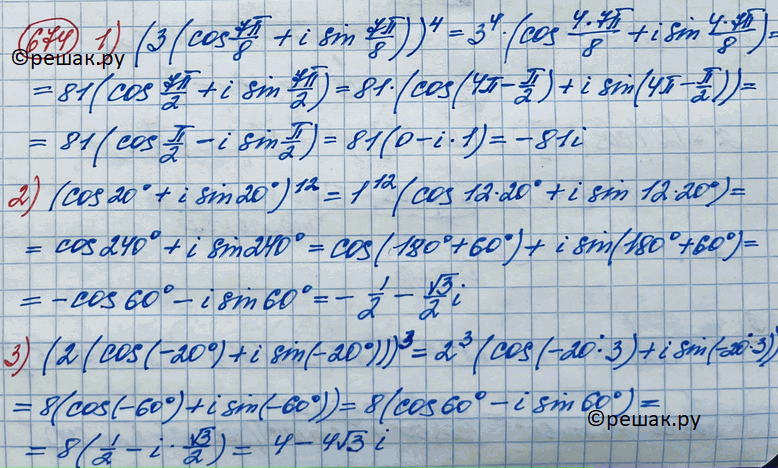 674 1) (3(cos 7π/8 + i sin 7π/8))⁴ = 3⁴·(cos 4·7π/8 + i sin 4·7π/8) =
©решак.ру
= 81(cos 7π/2 + i sin 7π/2) = 81·(cos(4π − π/2) + i sin(4π − π/2)) =
= 81(cos π/2 − i sin π/2) = 81(0 − i·1) = −81i
2) (cos 20° + i sin 20°)¹² = 1¹²(cos 12·20° + i sin 12·20°) =
= cos 240° + i sin 240° = cos(180° + 60°) + i sin(180° + 60°) =
= −cos 60° − i sin 60° = −1/2 − √3/2 i
3) (2(cos(−20°) + i sin(−20°)))³ = 2³(cos(−20°·3) + i sin(−20°·3))
= 8(cos(−60°) + i sin(−60°)) = 8(cos 60° − i sin 60°) =
©решак.ру
= 8(1/2 − i·√3/2) = 4 − 4√3 i